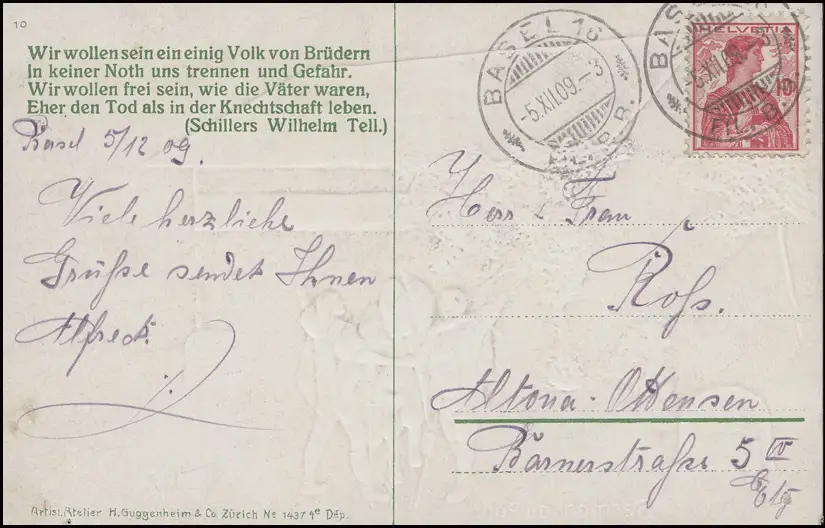 10
Wir wollen sein ein einig Volk von Brüdern
In keiner Noth uns trennen und Gefahr.
Wir wollen frei sein, wie die Väter waren,
Eher den Tod als in der Knechtschaft leben.
(Schillers Wilhelm Tell.)
Basel 5/12 09.
Viele herzliche
Grüße sendet Ihnen
Alfred.
Artist. Atelier H. Guggenheim & Co. Zürich No 1437 4e Dép.
BASEL 16
-5.XII.09.-3
HELVETIA
10
Herr Frau
Roſs.
Altona-Ottensen
Barnerstraße 5 IV